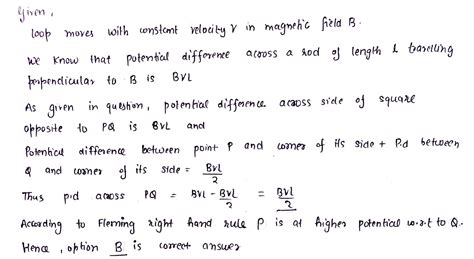 Given,
loop moves with constant velocity V in magnetic field B.
we know that potential difference across a rod of length L travelling
perpendicular to B is BVL
As given in question, potential difference across side of square
opposite to PQ is BVL and
Potential difference between point P and corner of its side + P.d between
Q and corner of its side = BVL/2
Thus p.d across PQ = BVL - BVL/2 = BVL/2
According to Fleming right hand rule P is at higher potential w.r.t to Q.
Hence, option B is correct answer